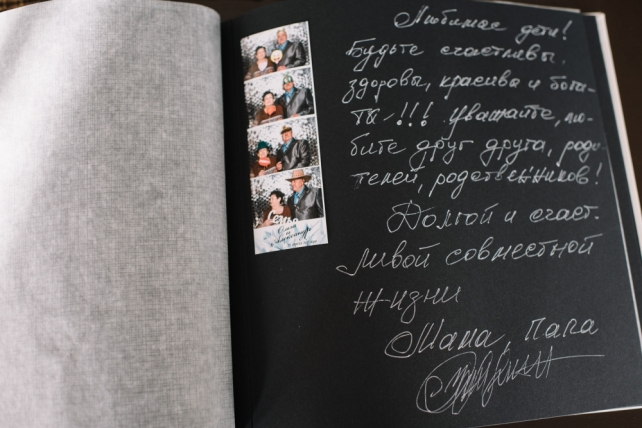 Любимые дети!
Будьте счастливы.
здоровы, красивы и бога-
ты-!!! Уважайте, лю-
бите друг друга, роди-
телей, родственников!
Долгой и счаст-
ливой совместной
жизни
Мама, папа
Семья